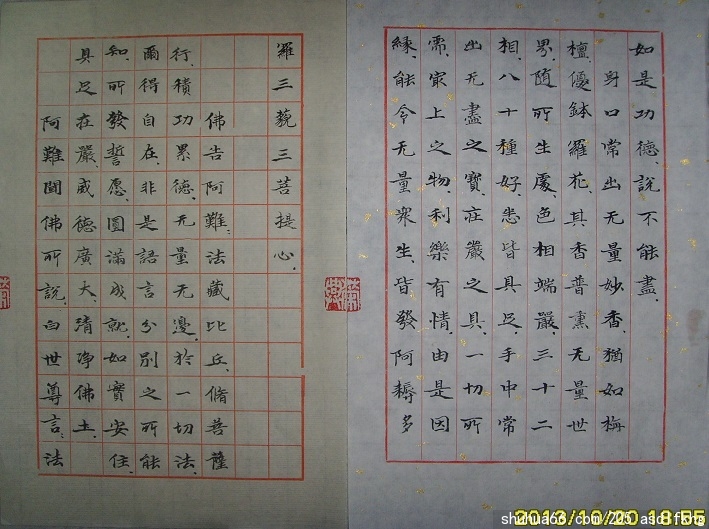 如是功德、說不能盡、
身口常出无量妙香、猶如栴
檀、優鉢羅花、其香普熏无量世
界、随所生處、色相端嚴、三十二
相、八十種好、悉皆具足、手中常
出无盡之寶、莊嚴之具、一切所
需、冣上之物、利樂有情、由是因
緣、能令无量衆生、皆發阿耨多
羅三藐三菩提心、
佛告阿難：法藏比丘、脩菩薩
行、積功累德、无量无邊、於一切法、
爾得自在、非是語言分別之所能
知、所發誓愿、圓滿成就、如實安住、
具足在嚴、威德廣大、清淨佛土、
阿難聞佛所說、白世尊言、法
2013/10/20 18:55